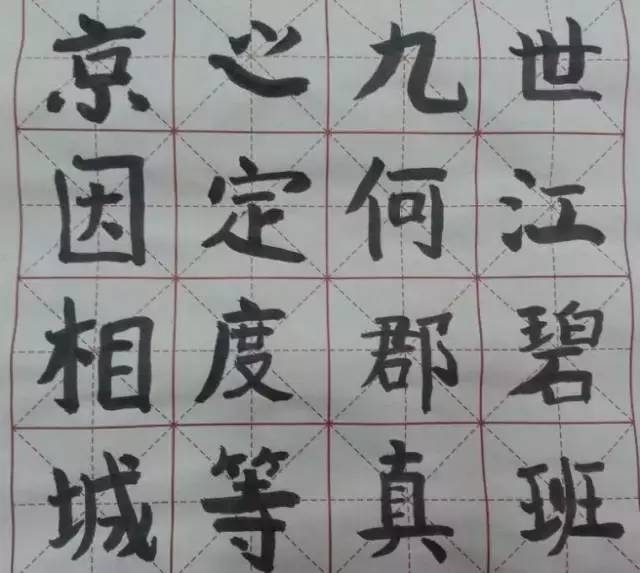 京心九世
因定何江
相度郡碧
城等真班